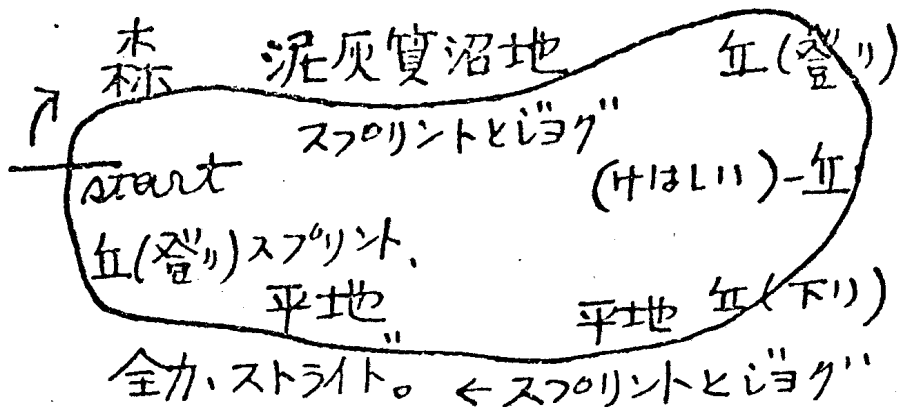 森 泥灰質沼地 丘(登り)
スプリントとジョグ
start
(けはしい)-丘
丘(登り)スプリント、
平地
平地 丘(下り)
全力、ストライド。 ←スプリントとジョグ